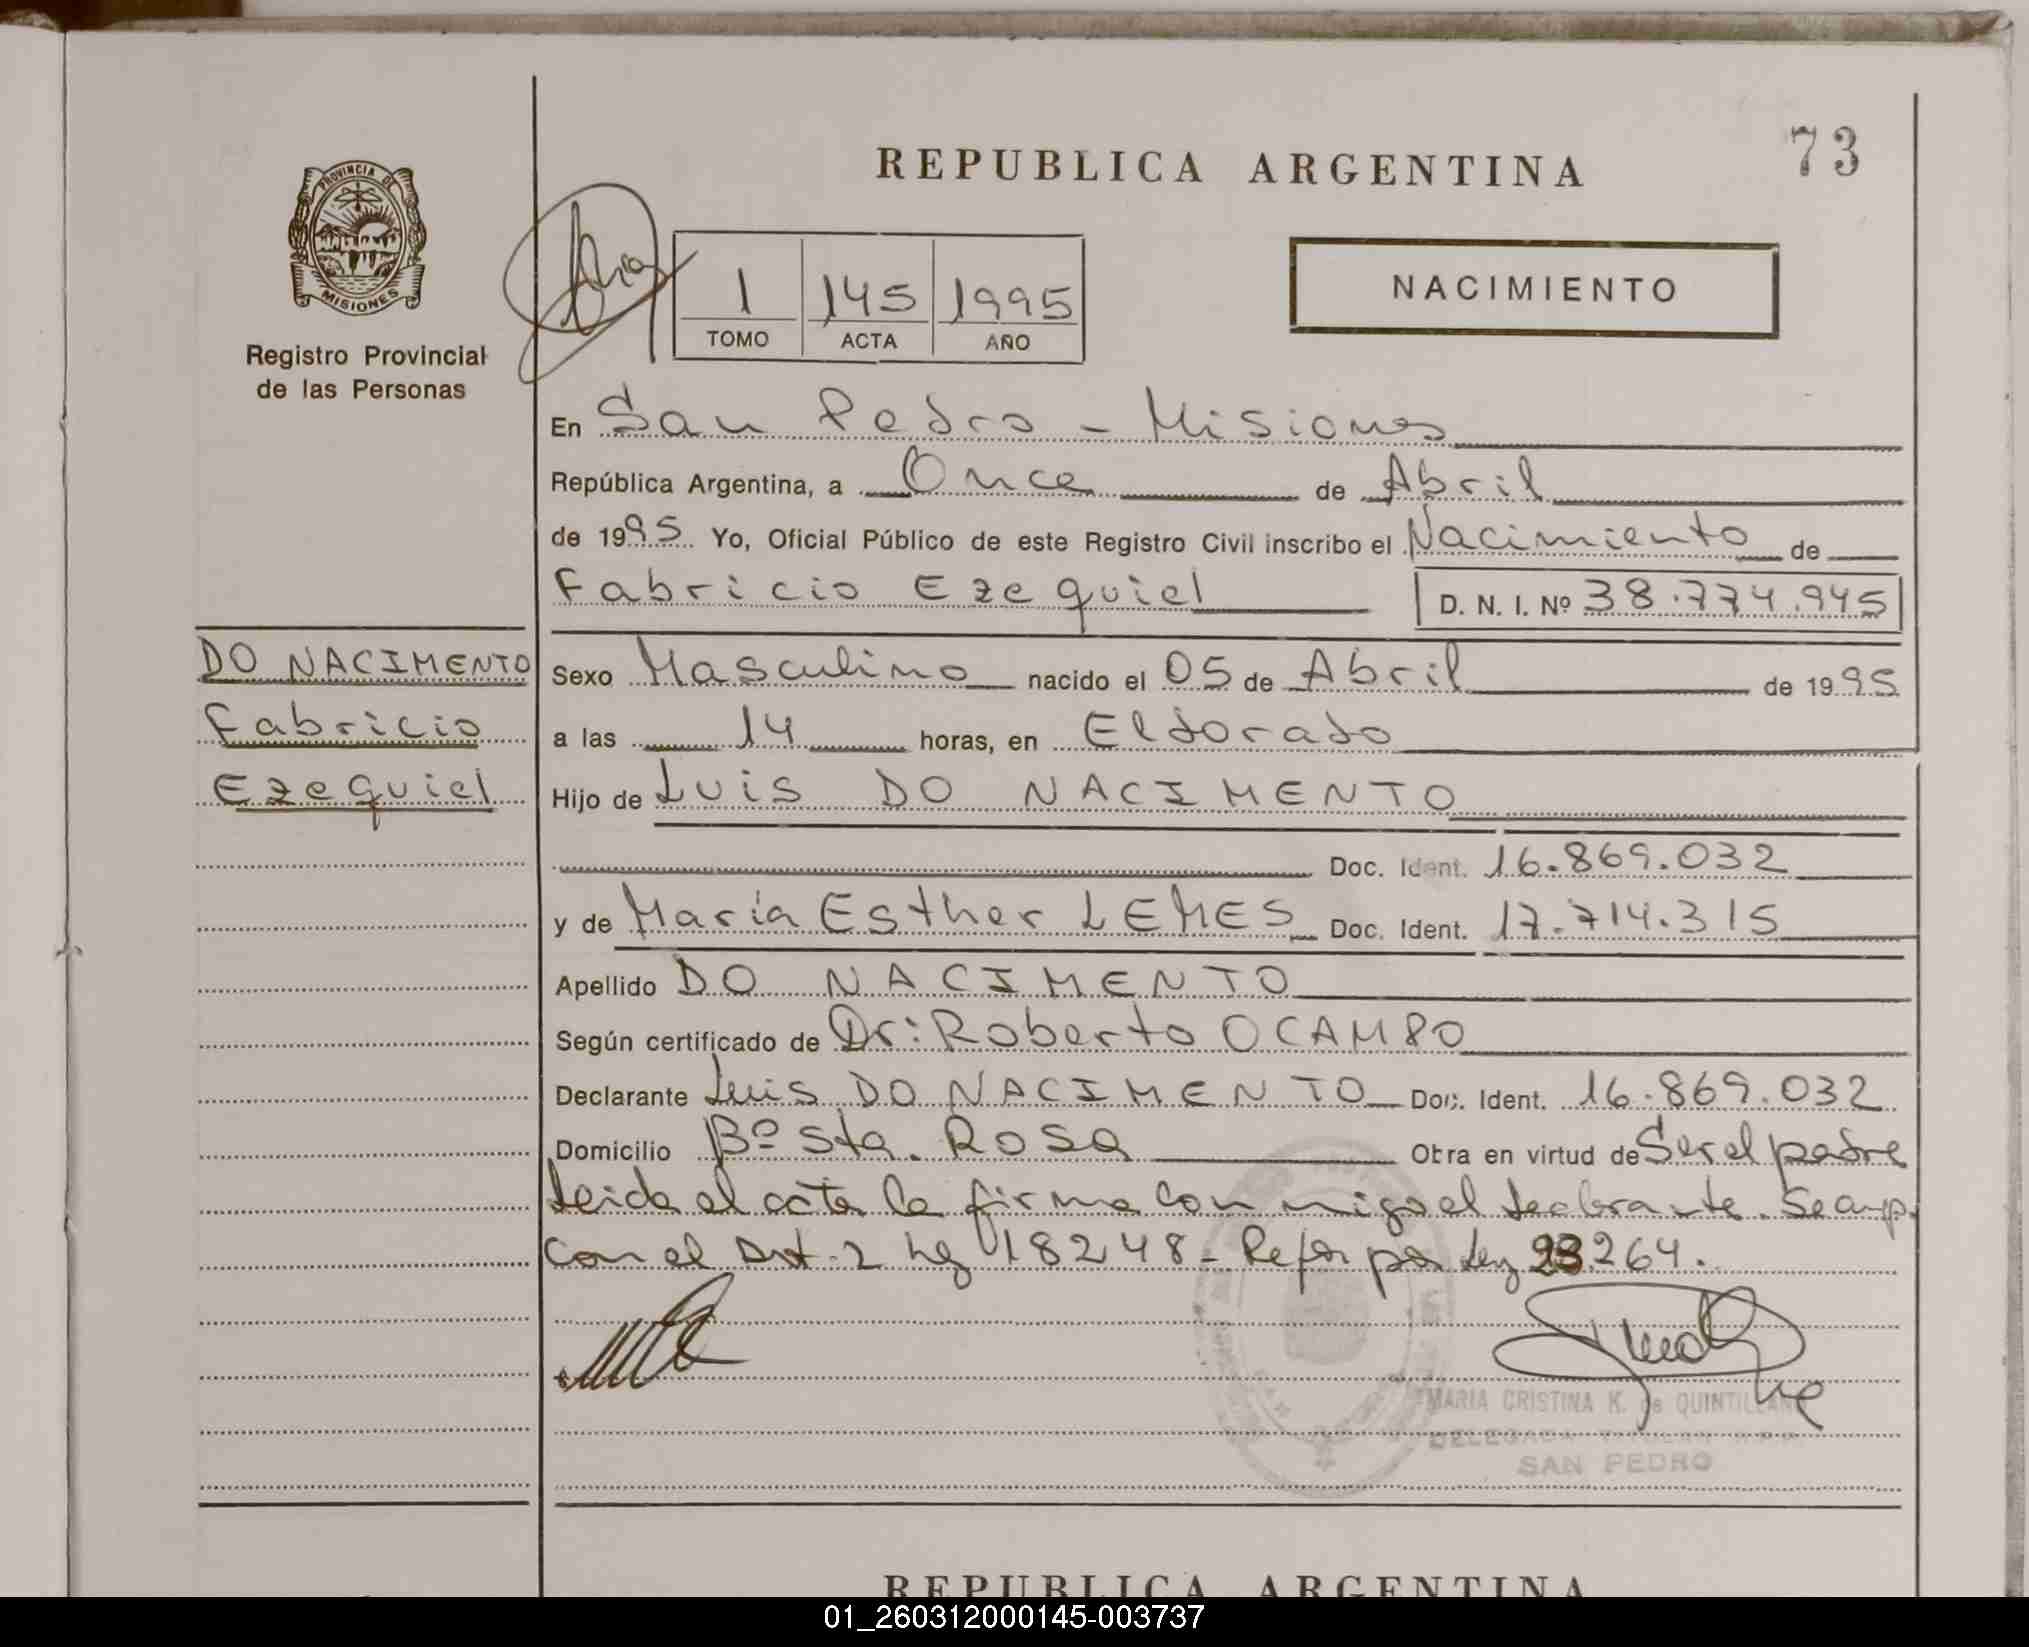 73
REPUBLICA ARGENTINA
PROVINCIA DE
MISIONES
Registro Provincial
de las Personas
1 145 1995
TOMO ACTA AÑO
NACIMIENTO
En San Pedro - Misiones
República Argentina, a Once de Abril
de 1995 Yo, Oficial Público de este Registro Civil inscribo el Nacimiento de
Fabricio Ezequiel D. N. I. Nº 38.774.945
DO NACIMENTO
Fabricio
Ezequiel
Sexo Masculino nacido el 05 de Abril de 1995
a las 14 horas, en Eldorado
Hijo de Luis DO NACIMENTO
Doc. Ident. 16.869.032
y de María Esther LEMES Doc. Ident. 17.714.315
Apellido DO NACIMENTO
Según certificado de Dr: Roberto OCAMPO
Declarante Luis DO NACIMENTO Doc. Ident. 16.869.032
Domicilio Bº Sta. Rosa Obra en virtud de Ser el padre
Leida el acta la firma con migo el declarante. Se amp.
con el Art. 2 Ley 18248 - Refor por Ley 23264.
MARIA CRISTINA K. de QUINTILLAN
DELEGADA TITULAR R.P.P.
SAN PEDRO
REPUBLICA ARGENTINA
01_260312000145-003737